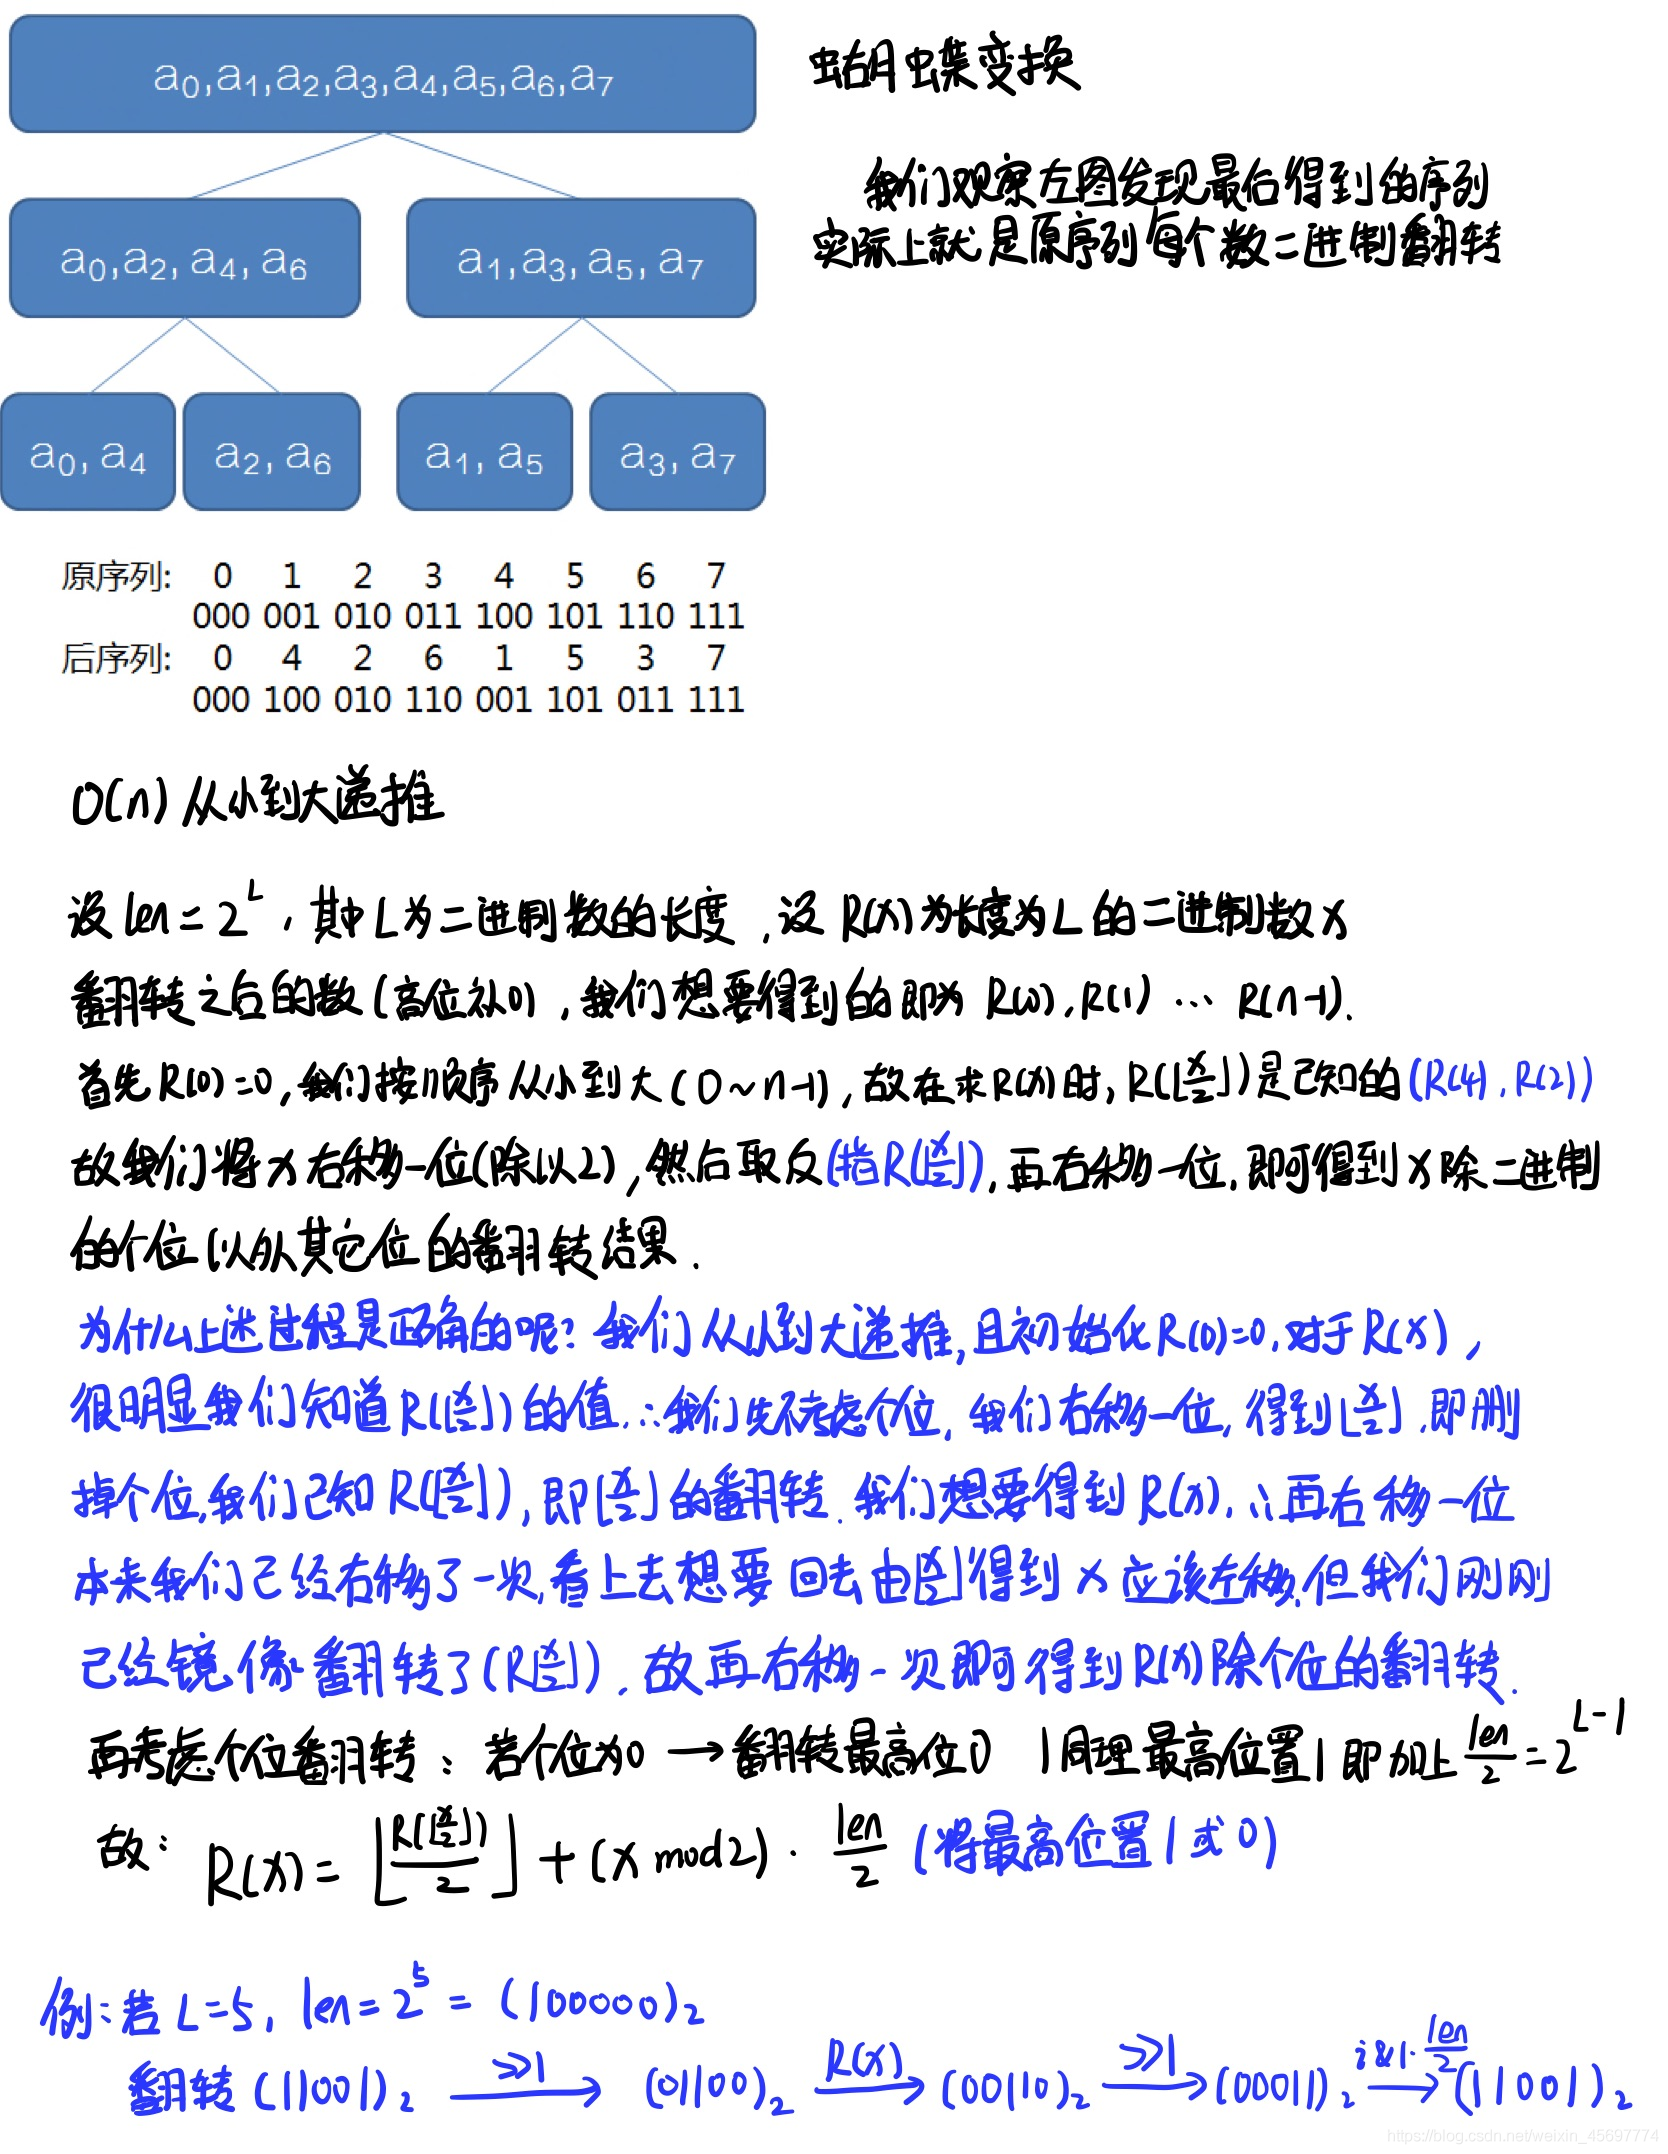 a₀,a₁,a₂,a₃,a₄,a₅,a₆,a₇
a₀,a₂, a₄, a₆
a₁,a₃, a₅, a₇
a₀, a₄
a₂, a₆
a₁, a₅
a₃, a₇
蝴蝶变换
我们观察左图发现最后得到的序列
实际上就是原序列每个数二进制翻转
原序列: 0 1 2 3 4 5 6 7
000 001 010 011 100 101 110 111
后序列: 0 4 2 6 1 5 3 7
000 100 010 110 001 101 011 111
O(n) 从小到大递推
设 len = 2^L , 其中 L 为二进制数的长度 , 设 R(x) 为长度为 L 的二进制数 x
翻转之后的数 (高位补0) , 我们想要得到的即为 R(0), R(1) ... R(n-1).
首先 R(0)=0, 我们按顺序从小到大 (0~n-1), 故在求R(x)时, R(⌊x/2⌋) 是已知的 (R(4), R(2))
故我们将 x 右移一位(除以2), 然后取反(指R(⌊x/2⌋)), 再右移一位, 即可得到 x 除二进制
的个位以外其它位的翻转结果.
为什么上述过程是正确的呢? 我们从小到大递推, 且初始化R(0)=0. 对于R(x),
很明显我们知道R(⌊x/2⌋)的值. ∴我们先不考虑个位, 我们右移一位, 得到⌊x/2⌋, 即删
掉个位, 我们已知 R(⌊x/2⌋), 即⌊x/2⌋的翻转. 我们想要得到 R(x). ∴再右移一位
本来我们已经右移了一次, 看上去想要回去由⌊x/2⌋得到 x 应该左移, 但我们刚刚
已经镜像翻转了(R⌊x/2⌋). 故再右移一次即可得到R(x)除个位的翻转.
再考虑个位翻转: 若个位为0 → 翻转最高位0 1同理最高位置1 即加上 len/2 = 2^(L-1)
故: R(x) = ⌊R(⌊x/2⌋)/2⌋ + (x mod 2) · len/2 (将最高位置1或0)
例: 若 L=5, len = 2^5 = (100000)₂
翻转 (11001)₂ →(≫1) (01100)₂ →(R(x)) (00110)₂ →(≫1) (00011)₂ →(i&1·len/2) (11001)₂
https://blog.csdn.net/weixin_45697774